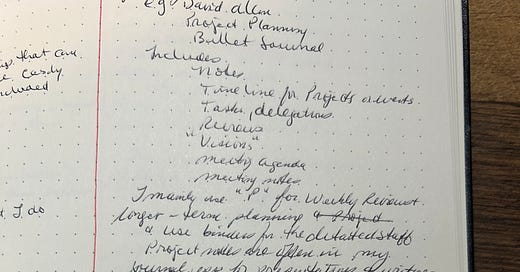 eg David Allen
Project Planning
Bullet Journal
that can
candy
included
Includes
Notes
Timeline for Projects or events
Tasks, delegations
Reviews
"Visions"
meeting agenda
meeting notes
I do
I mainly use "P" for Weekly Reviews &
longer-term planning
& use binders for the detailed stuff
Project notes are often in my
journal,